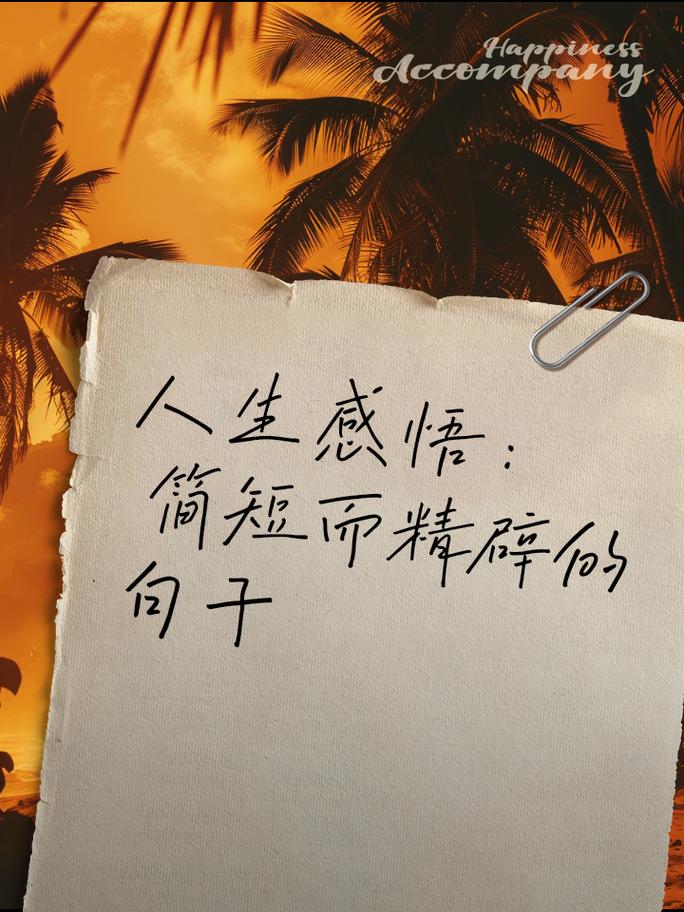 Happiness
Accompany
人生感悟：
简短而精辟的
句子